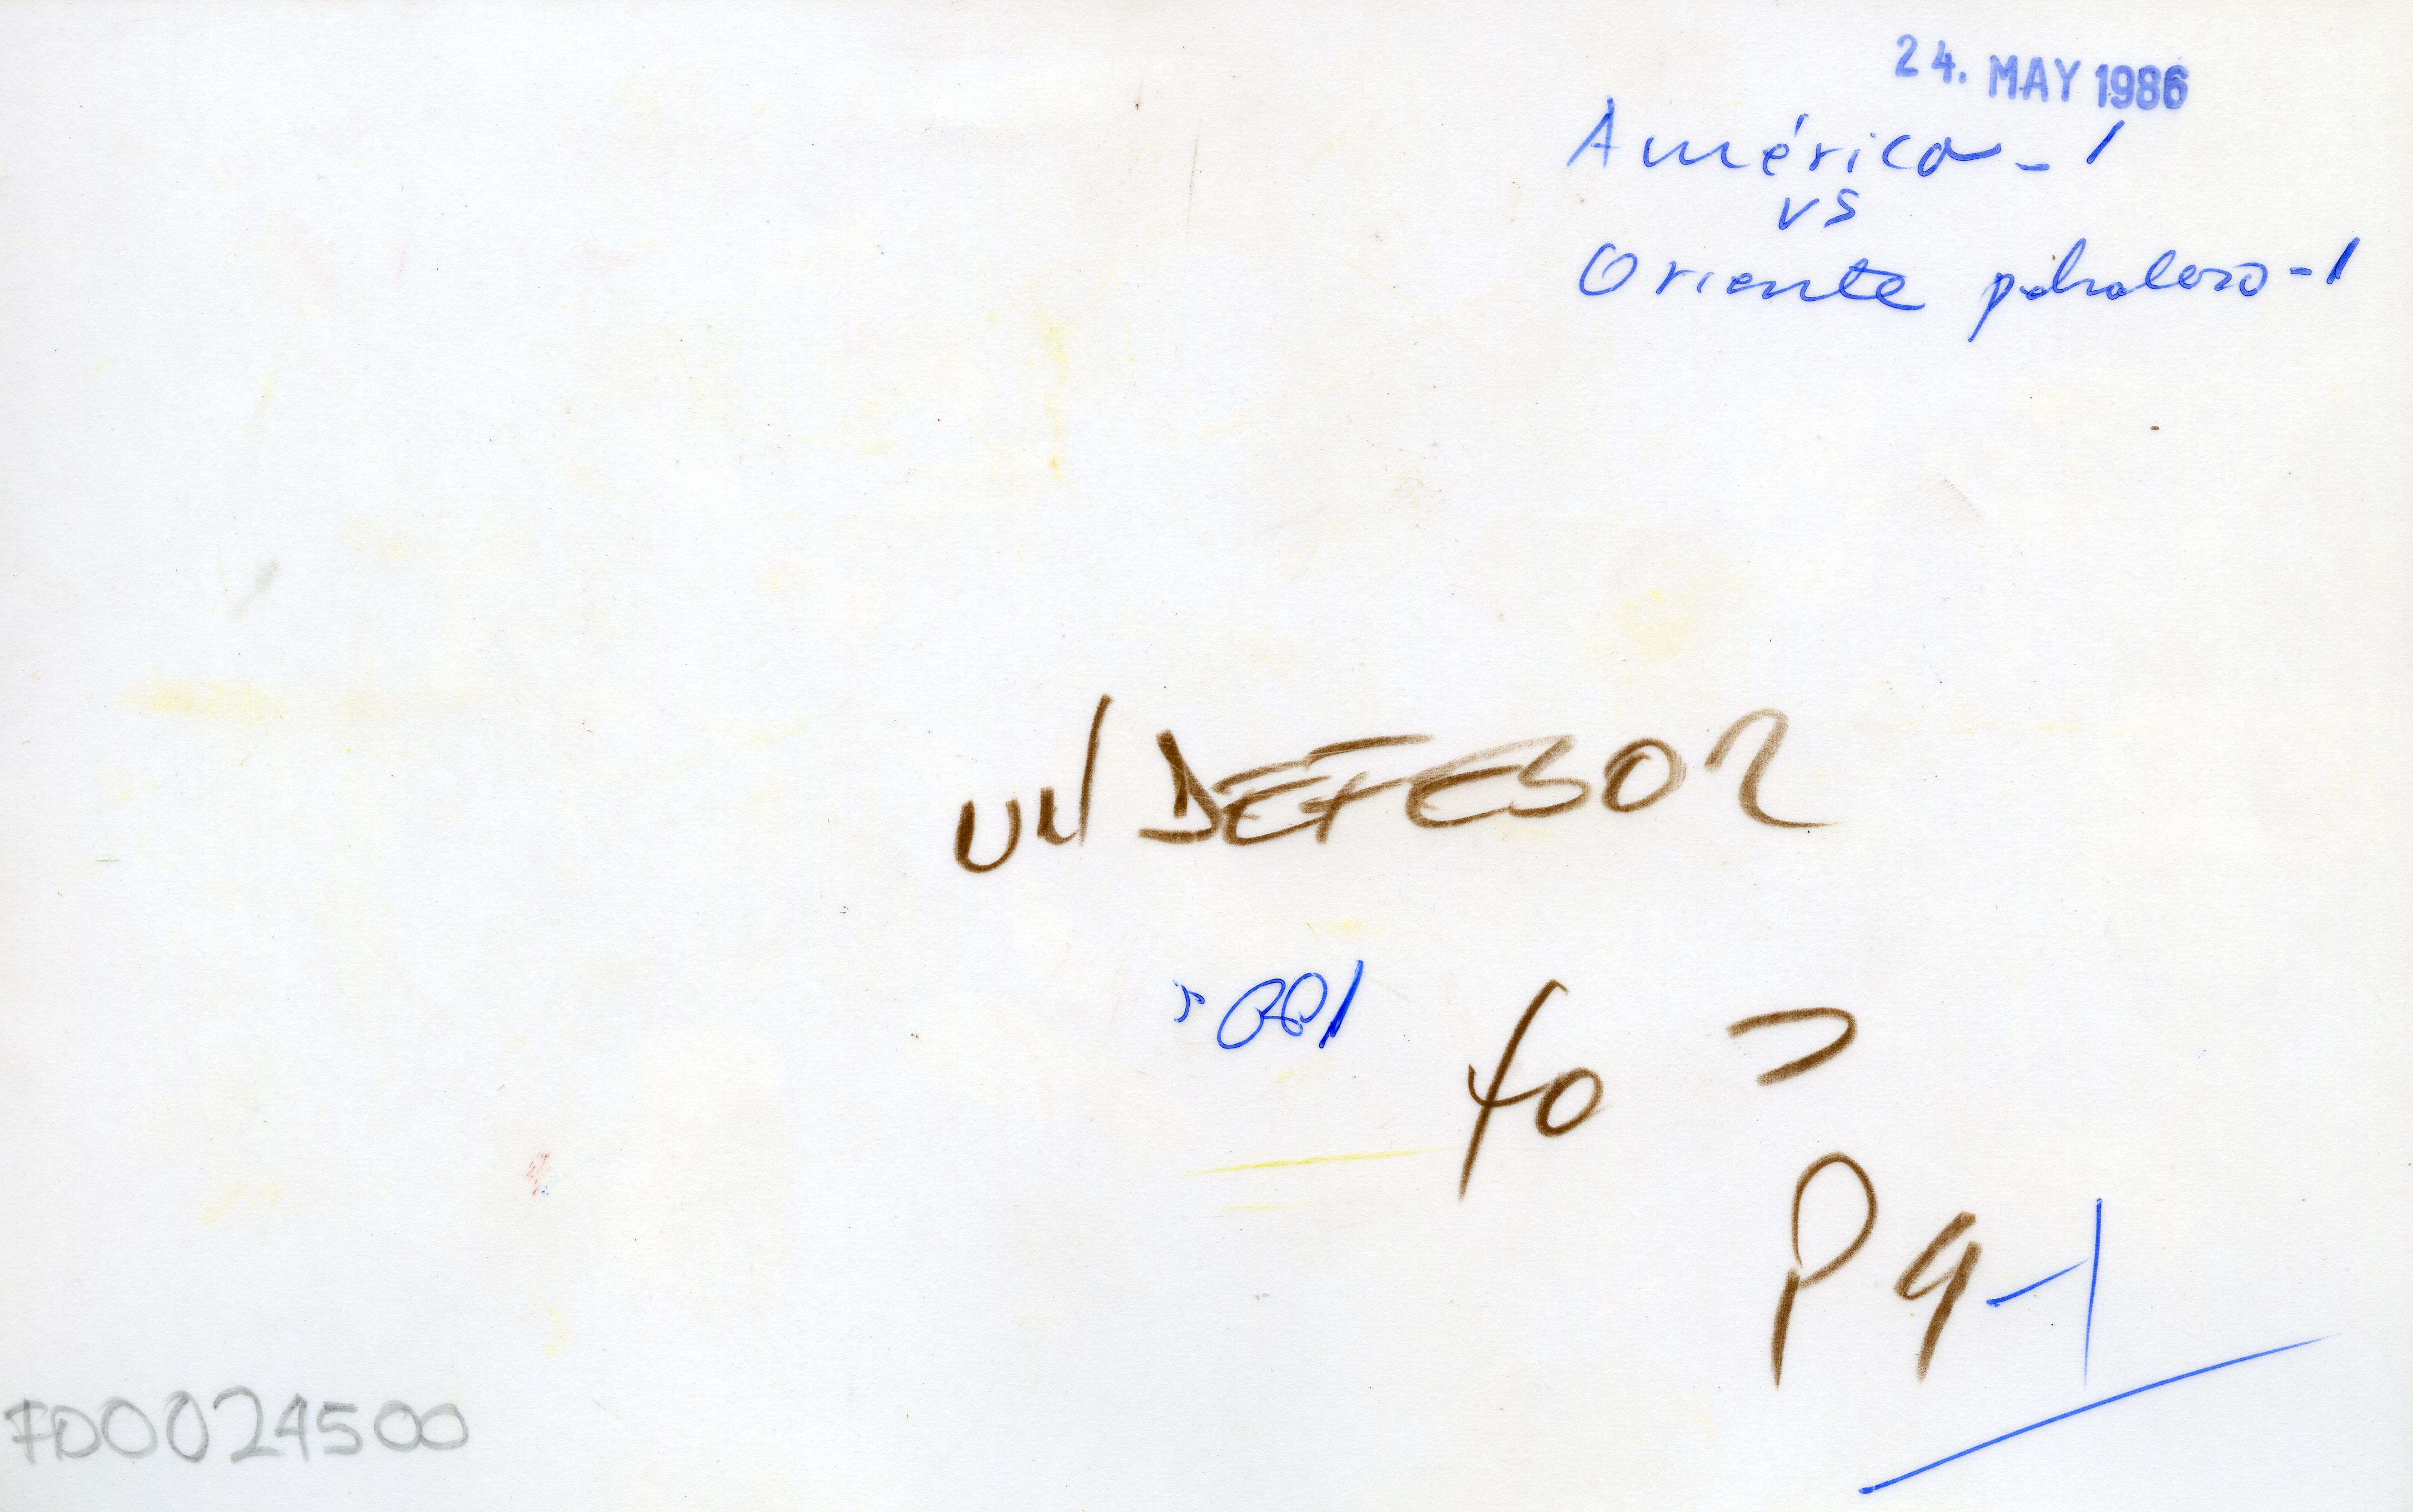 24. MAY 1986
América - 1
vs
Oriente petrolero - 1
UN DEFESOR
P 9-1
FD0024500